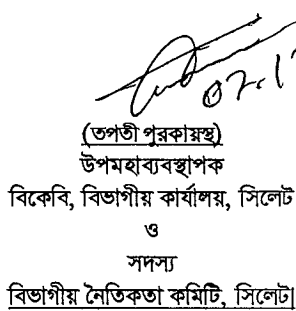 (তপতী পুরকায়স্থ)
উপমহাব্যবস্থাপক
বিকেবি, বিভাগীয় কার্যালয়, সিলেট
ও
সদস্য
বিভাগীয় নৈতিকতা কমিটি, সিলেট।